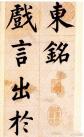 東銘
戲言出於